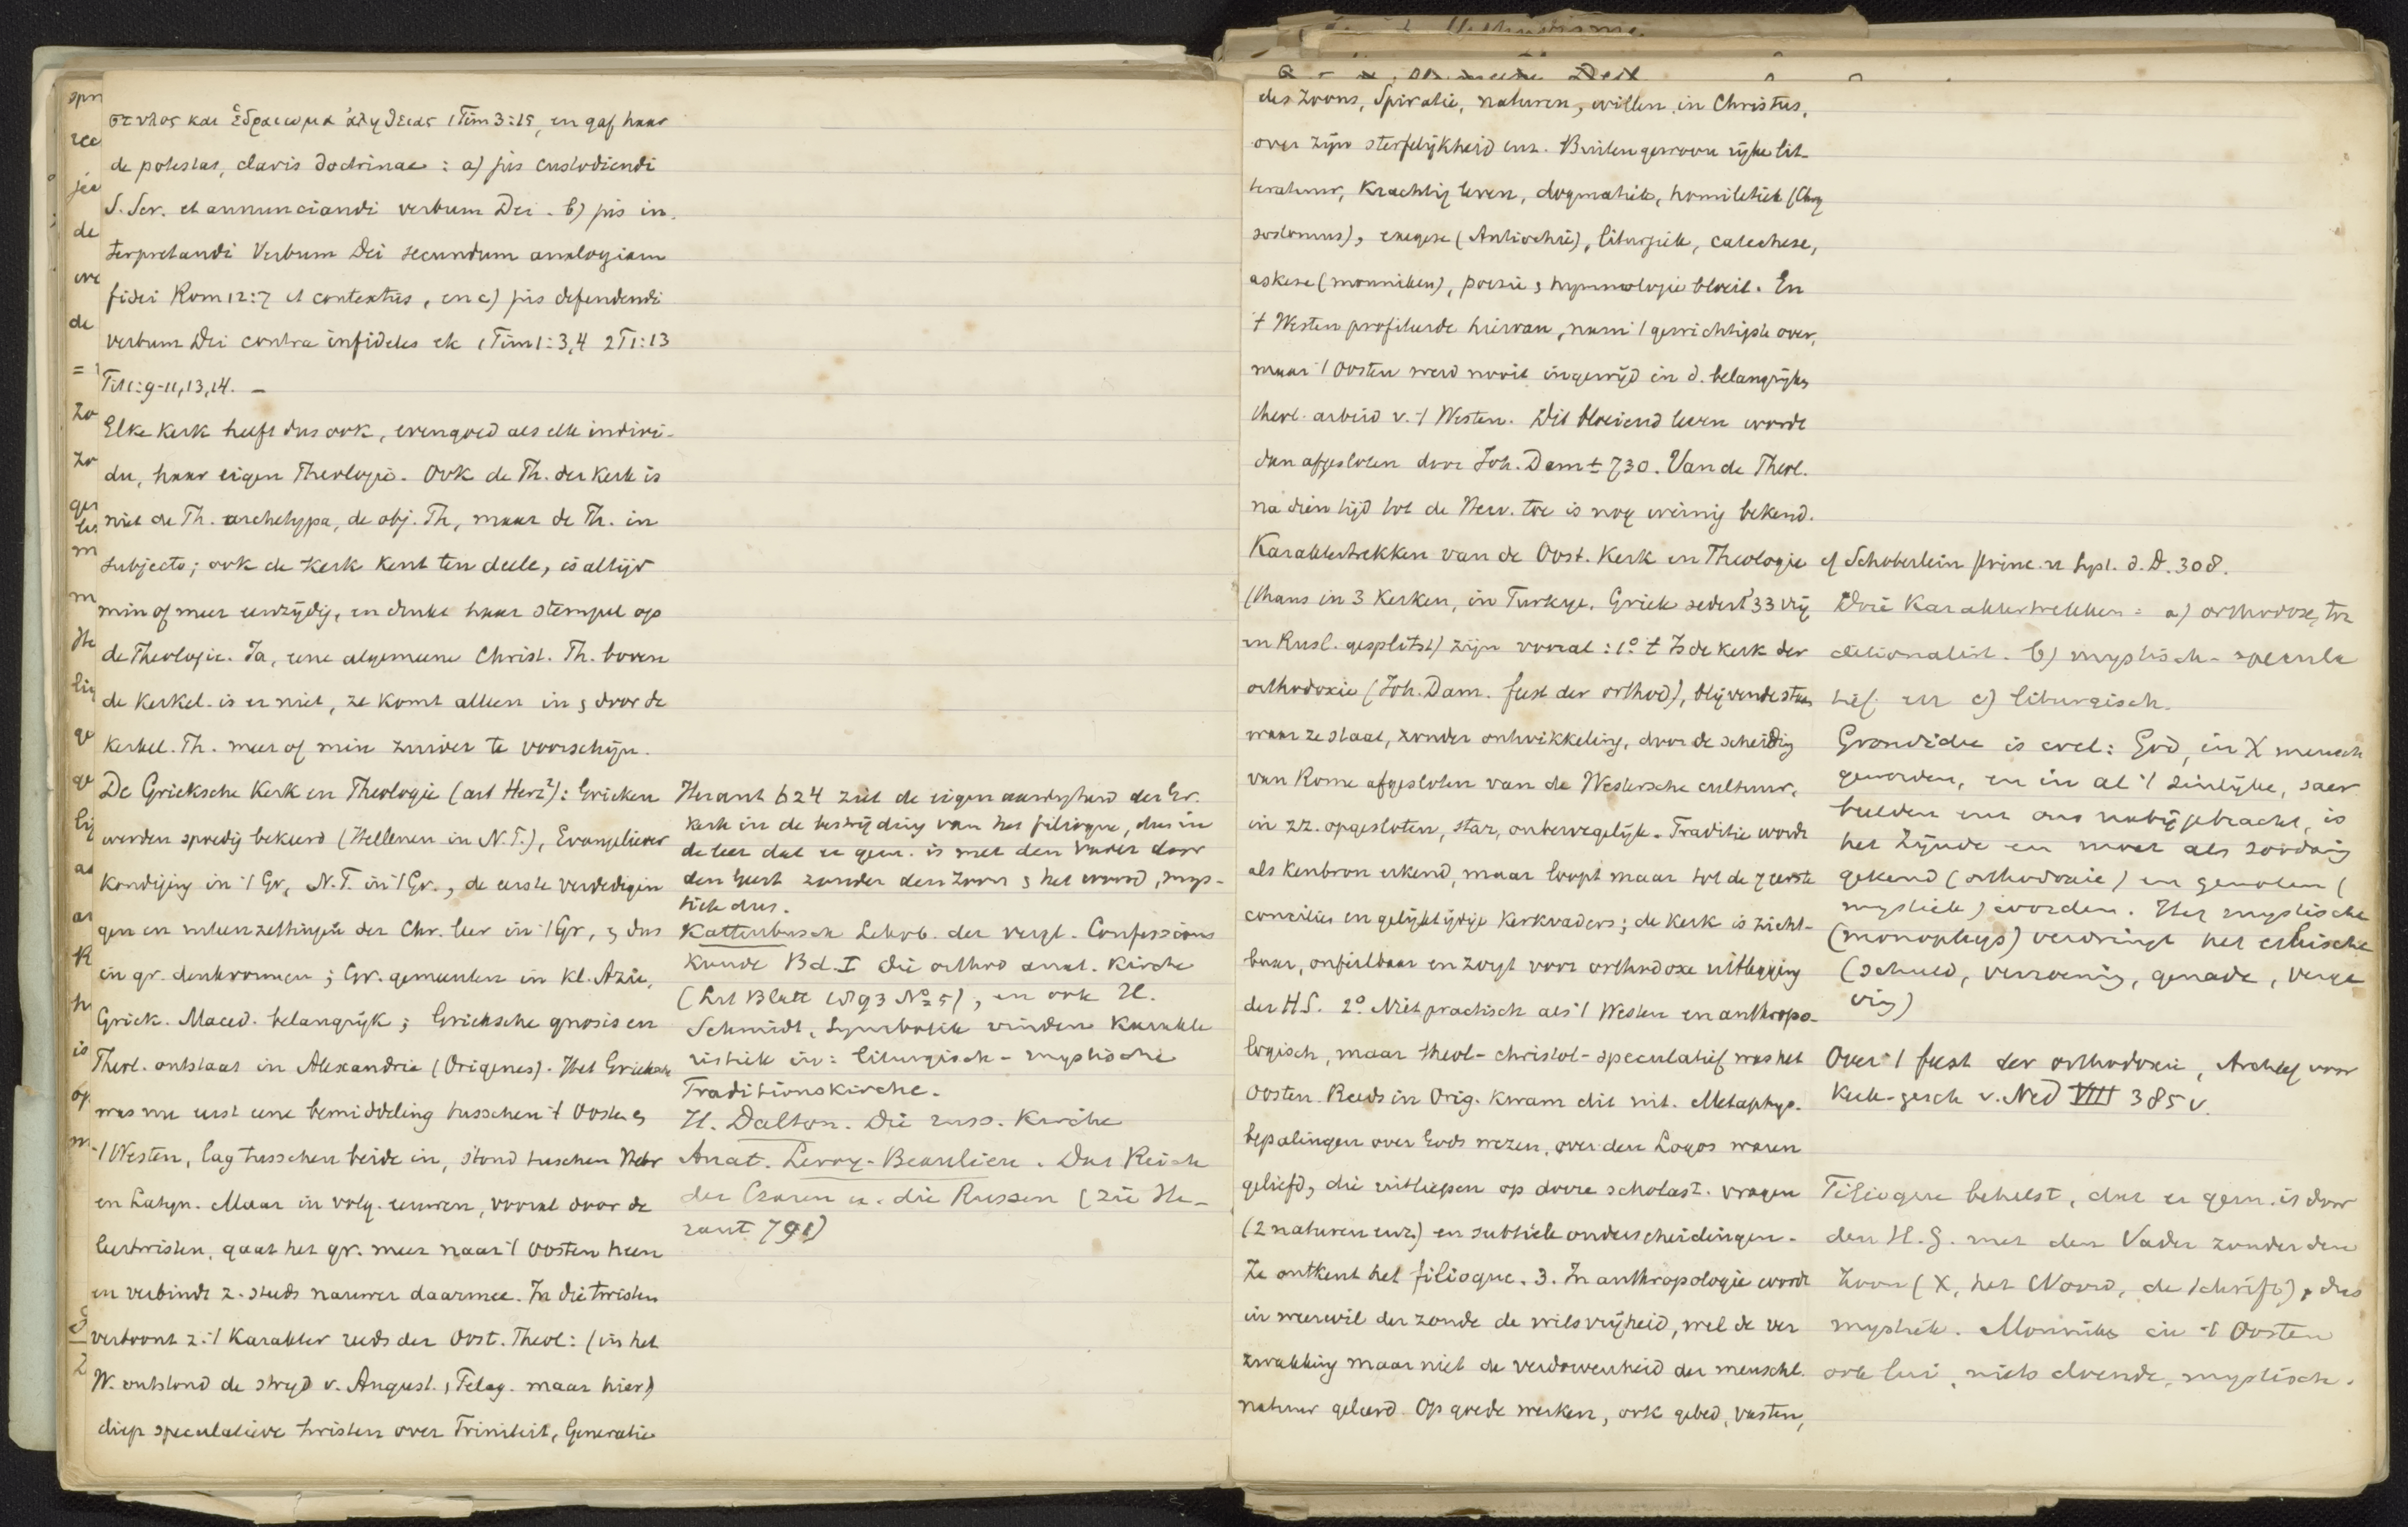 στυλος και ἑδραιωμα ἀληθειας 1 Tim 3:15, en gaf haar
de potestas, clavis doctrinae : a) jus custodiendi
S. Scr. et annunciandi verbum Dei. b) jus in-
terpretandi Verbum Dei secundum analogiam
fidei Rom 12:7 et contextus, en c) jus defendendi
verbum Dei contra infideles etc 1 Tim 1:3,4 2 T 1:13
Tit 1:9-11, 13, 14. –
Elke Kerk heeft dus ook, evengoed als elk indivi-
du, haar eigen Theologie. Ook de Th. der Kerk is
niet de Th. archetypa, de obj. Th, maar de Th. in
subjecto; ook de Kerk kent ten deele, is altijd
min of meer eenzijdig, en drukt haar stempel op
de Theologie. Ja, eene algemeene Christ. Th. boven
de Kerkel. is er niet, ze komt alleen in & door de
Kerkel. Th. meer of min zuiver te voorschijn.
De Grieksche Kerk en Theologie (art Herz²): Grieken
werden spoedig bekeerd (Hellenen in N.T.), Evangeliever
kondiging in 't Gr, N.T. in 't Gr., de eerste verdedigin
gen en uiteenzettingen der Chr. leer in 't Gr, & dus
in gr. denkvormen; Gr. gemeenten in Kl. Azie,
Griek. Maced. belangrijk; Grieksche gnosis en
Theol. ontstaat in Alexandrie (Origenes). Het Grieksche
was nu eerst eene bemiddeling tusschen 't Oosten &
't Westen, lag tusschen beide in, stond tusschen Hebr
en Latijn. Maar in volg. eeuwen, vooral door de
leertwisten, gaat het gr. meer naar 't Oosten heen
en verbindt z. steeds nauwer daarmee. In die twisten
vertoont z. 't Karakter reeds der Oost. Theol: (in het
W. ontstond de strijd v. August., Pelag. maar hier)
diep speculatieve twisten over Triniteit, Generatie
Heraut 624 ziet de eigenaardigheid der Gr.
Kerk in de bestrijding van het filioque, dus in
de leer dat er gem. is met den Vader door
den Geest zonder den Zoon & het woord, mys-
tiek dus.
Kattenbusch Lehrb. der vergl. Confessions
kunde Bd. I Die orthod anat. Kirche
(Lit Blatt 1893 No 5), en ook H.
Schmidt, Symbolik vinden Karakte
ristiek in: liturgisch-mystische
Traditionskirche.
H. Dalton. Die russ. Kirche
Anat. Leroy-Beaulieu. Das Reich
der Czaren u. die Russen (zie He-
raut 791)
des Zoons, Spiratie, naturen, willen in Christus,
over zijn sterfelijkheid enz. Buitengewoon rijke lit-
teratuur, krachtig leven, dogmatiek, homiletiek (Chry
sostomus), exegese (Antiochie), liturgiek, catechese,
askese (monniken), poezie & hymnologie bloeit. En
't Westen profiteerde hiervan, nam 't gewichtigste over,
maar 't Oosten werd nooit ingewijd in d. belangrijke
theol. arbeid v. 't Westen. Dit bloeiend leven wordt
dan afgesloten door Joh. Dam ± 730. Van de Theol.
na dien tijd tot de Herv. toe is nog weinig bekend.
Karaktertrekken van de Oost. Kerk en Theologie
(thans in 3 Kerken, in Turkye, Griek sedert '33 vrij
en Rusl. gesplitst) zijn vooral: 1º 't Is de Kerk der
orthodoxie (Joh. Dam. feest der orthod), blijvende staan
waar ze staat, zonder ontwikkeling, door de scheiding
van Rome afgesloten van de Westersche cultuur,
in zz. opgesloten, star, onbewegelijk. Traditie wordt
als Kenbron erkend, maar loopt maar tot de 7 eerste
concilies en gelijktijdige Kerkvaders; de Kerk is zicht-
baar, onfeilbaar en zorgt voor orthodoxe uitlegging
der H.S. 2º Niet practisch als 't Westen en anthropo-
logisch, maar theol-christol-speculatief was het
Oosten. Reeds in Orig. kwam dit uit. Metaphys.
bepalingen over Gods wezen, over den Logos waren
geliefd, die uitliepen op dorre scholast. vragen
(2 naturen enz) en subtiele onderscheidingen.
Ze ontkent het filioque. 3. In anthropologie wordt
in weerwil der zonde de wilsvrijheid, wel de ver
zwakking maar niet de verdorvenheid der menschl.
natuur geleerd. Op goede werken, ook gebed, vasten,
cf Schoberlein Princ. u Syst. d. D. 308.
Drie Karaktertrekken: a) orthodox, tra
ditionalist. b) mystisch-specula
tief en c) liturgisch.
Grondidee is veel: God, in X mensch
geworden, en in al 't zinlijke, sacr
beelden enz ons nabijgebracht, is
het Zijnde en moet als zoodanig
gekend (orthodoxie) en genoten (
mystiek) worden. Het mystische
(monophys) verdringt het ethische
(schuld, verzoening, genade, verge
ving)
Over 't feest der orthodoxie, Archief voor
Kerk-gesch v. Ned VIII 385 v.
Filioque behelst, dat er gem. is door
den H.G. met den Vader zonder den
Zoon (X, het Woord, de Schrift), dus
mystiek. Monniken in 't Oosten
ook lui, niets doende, mystisch.